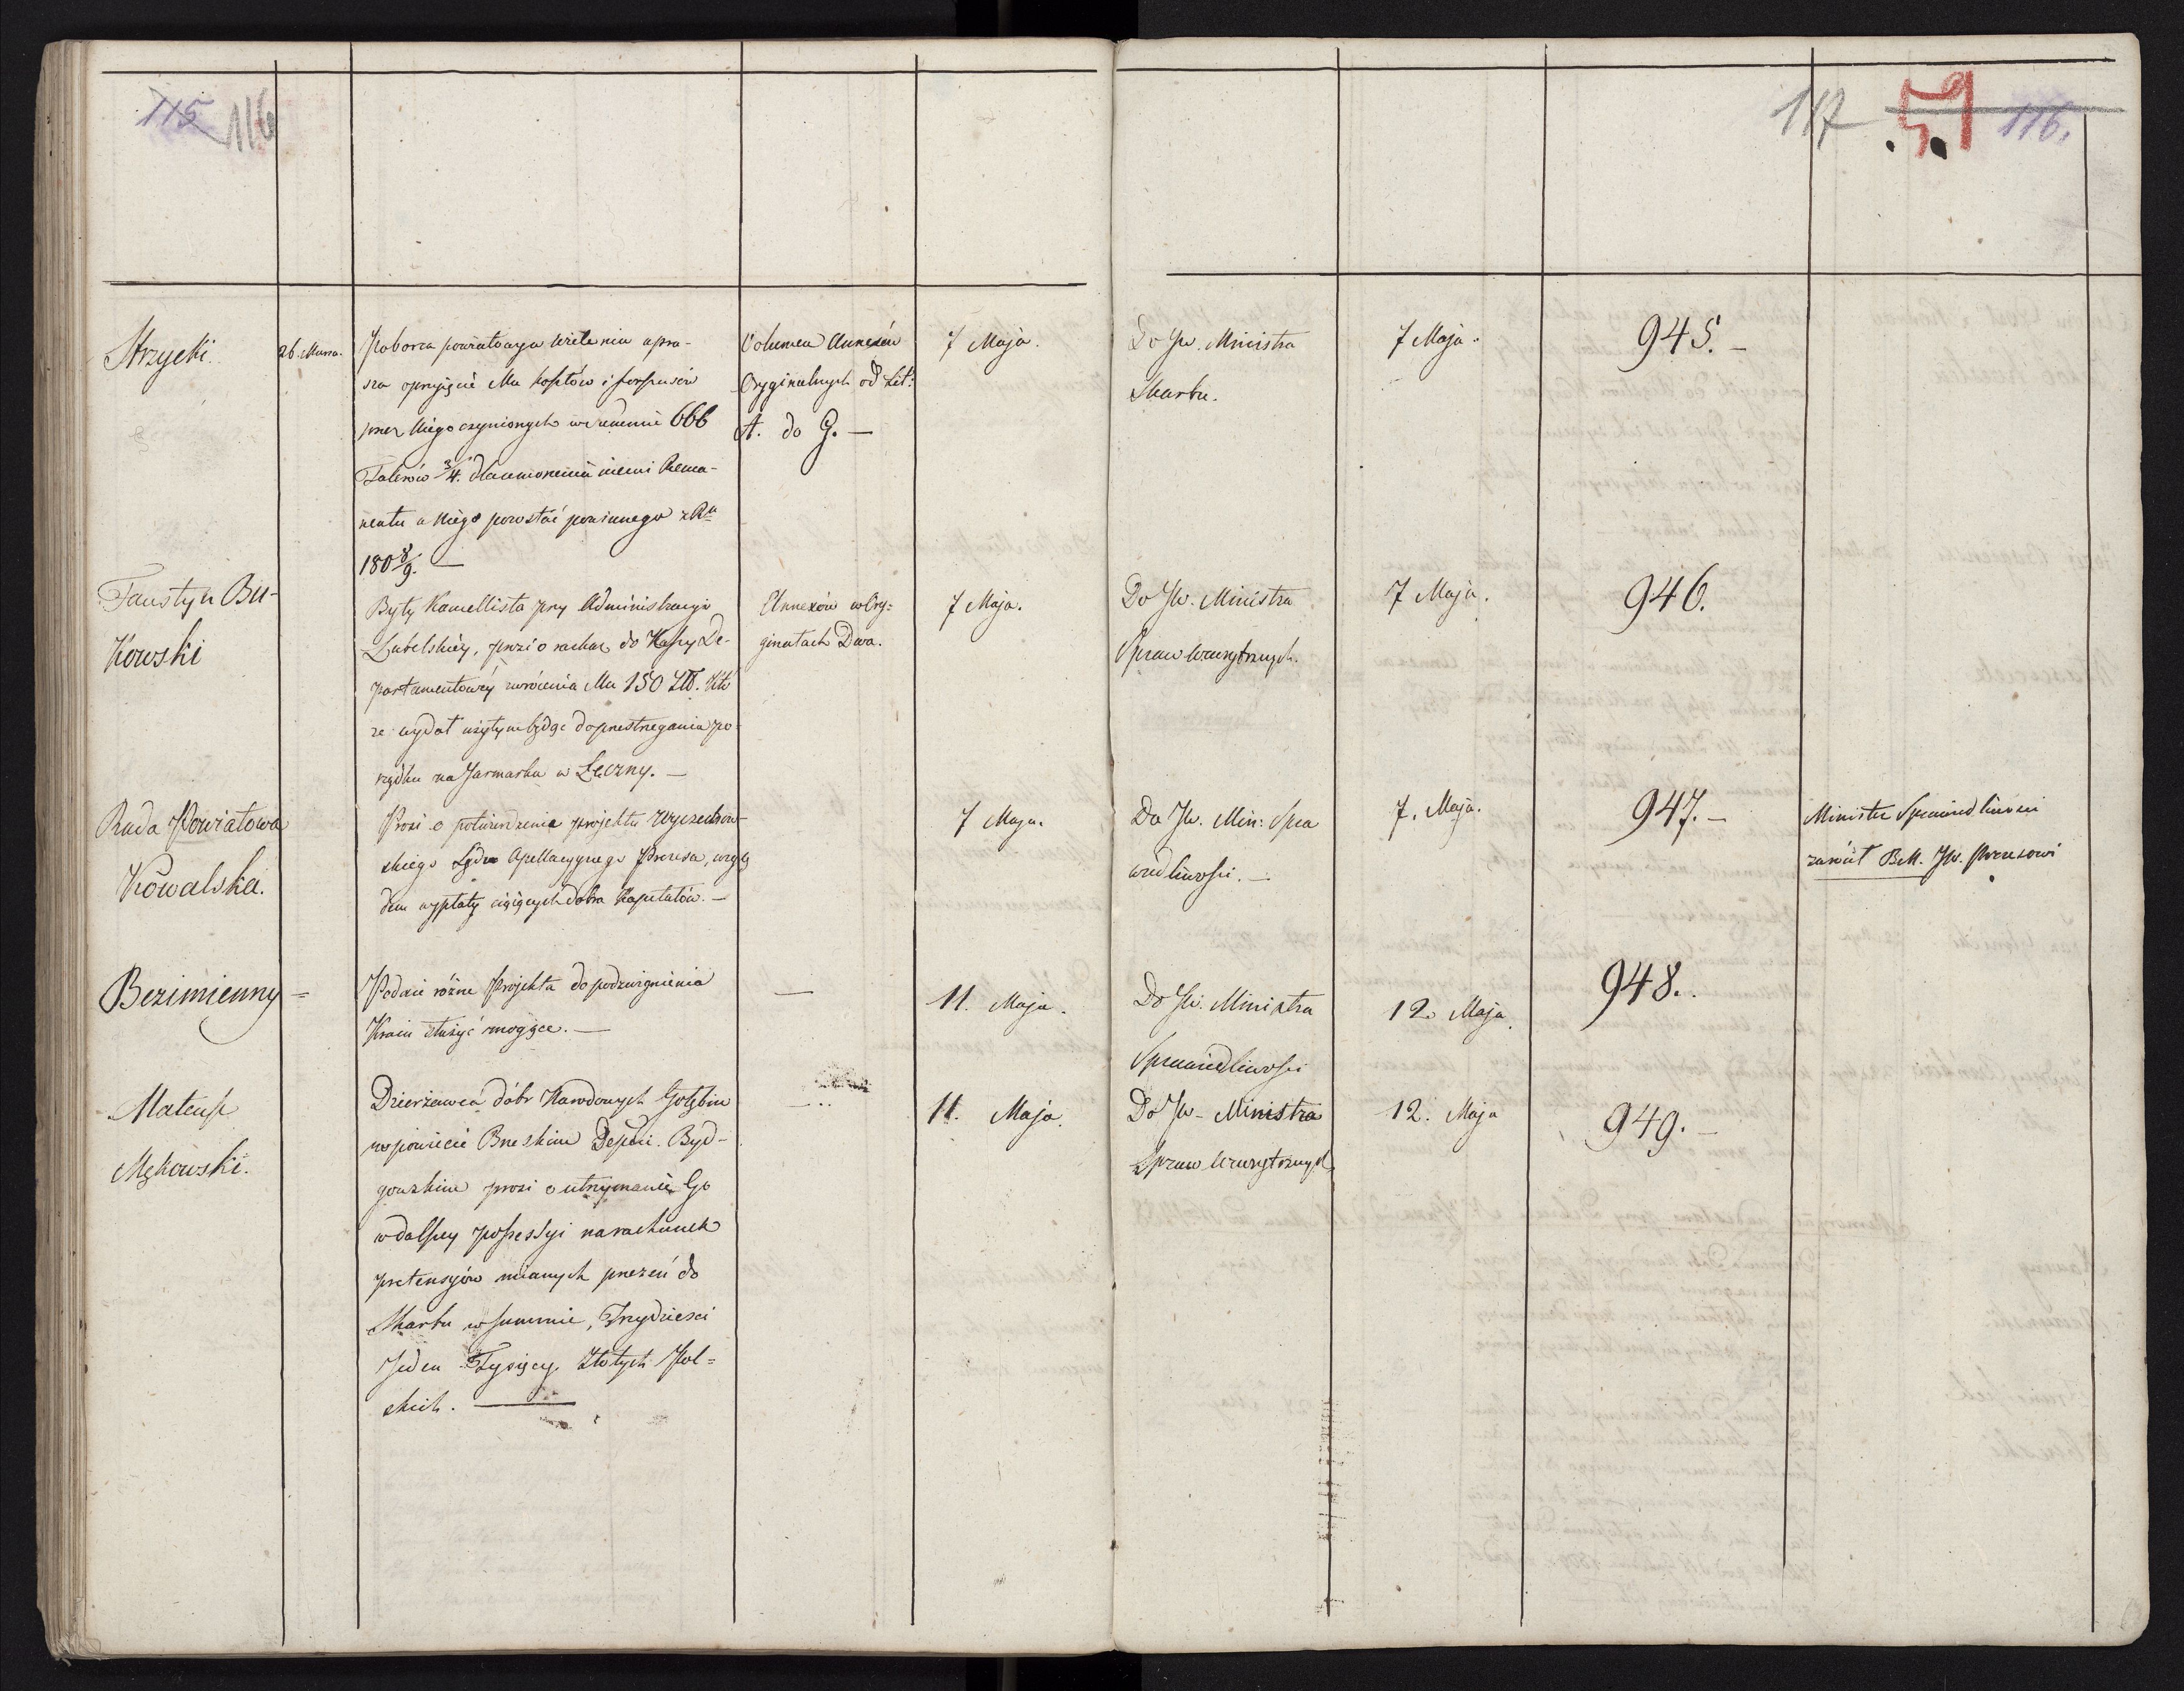 115 116
117 59 116.
Strzycki. 26. Marca. Poborca powiatowy upra-
sza o przyjęcie Mu kosztów i
przez Niego czynionych w Summie 666
Talerów 3/4.
Niego powstać powinnego z Ru
180 8/9. —
Volumen Annexów
Oryginalnych od Lit:
A. do G. —
7 Maja.
Do JW. Ministra
Skarbu.
7 Maja.
945. —
Faustyn Bu-
kowski
Były Kancellista przy Administracyi
Lubelskiéy, prosi o rachu do Kassy De-
partamentowéy zwrócenia Mu 150 Złł. któ
re wydał użytym będąc do przestrzegania po-
rządku na Jarmarku w Łęczny. —
Annexów w Ory-
ginałach Dwa.
7 Maja.
Do JW. Ministra
Spraw Wewnętrznych.
7 Maja.
946.
Rada Powiatowa
Kowalska.
Prosi o potwierdzenie projektu Wyczechow-
skiego Sądu Apellacyynego Prezesa, wzglę
dem wypłaty ciążących dobra Kapitałów. —
7 Maja.
Do JW. Min: Spra
wiedliwości. —
7. Maja.
947. —
Minister Sprawiedliwości
zwrócił JW. Prezesowi
Bezimienny =
Podaie różne Projekta do podzwignienia
Kraiu służyć mogące. —
—
11. Maja.
Do JW. Ministra
Sprawiedliwości
12. Maja.
948..
Mateusz
Mąkowski.
Dzierżawca dóbr Narodowych Gołębin
w powiecie Brzeskim Depcie. Byd-
goskim prosi o utrzymanie Go
w dalszey possessyi na rachunek
pretensyów mianych przezeń do
Skarbu w summie, Trzydzieści
Jeden Tysięcy Złotych Pol=
skich. —
11. Maja.
Do JW. Ministra
Spraw Wewnętrznych
12. Maja
949. —